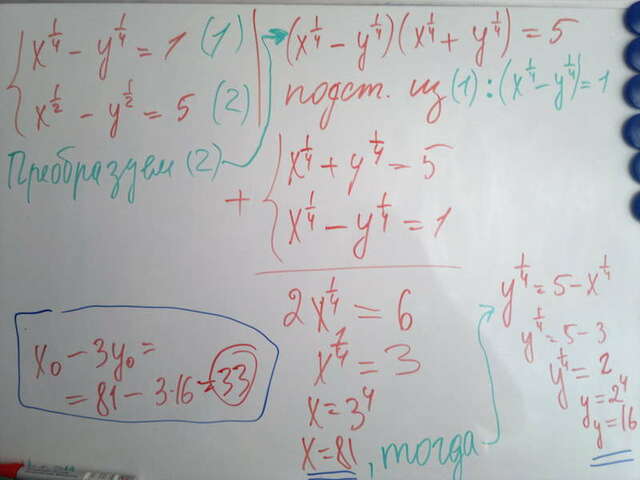 x^{1/4} − y^{1/4} = 1 (1)
x^{1/2} − y^{1/2} = 5 (2)
Преобраздем (2)
(x^{1/4} − y^{1/4})(x^{1/4} + y^{1/4}) = 5
подст. из (1): (x^{1/4} − y^{1/4}) = 1
x^{1/4} + y^{1/4} = 5
+
x^{1/4} − y^{1/4} = 1
2x^{1/4} = 6
x^{1/4} = 3
x = 3^4
x = 81, тогда
y^{1/4} = 5 − x^{1/4}
y^{1/4} = 5 − 3
y^{1/4} = 2
y = 2^4
y = 16
x₀ − 3y₀ =
= 81 − 3·16 = 33